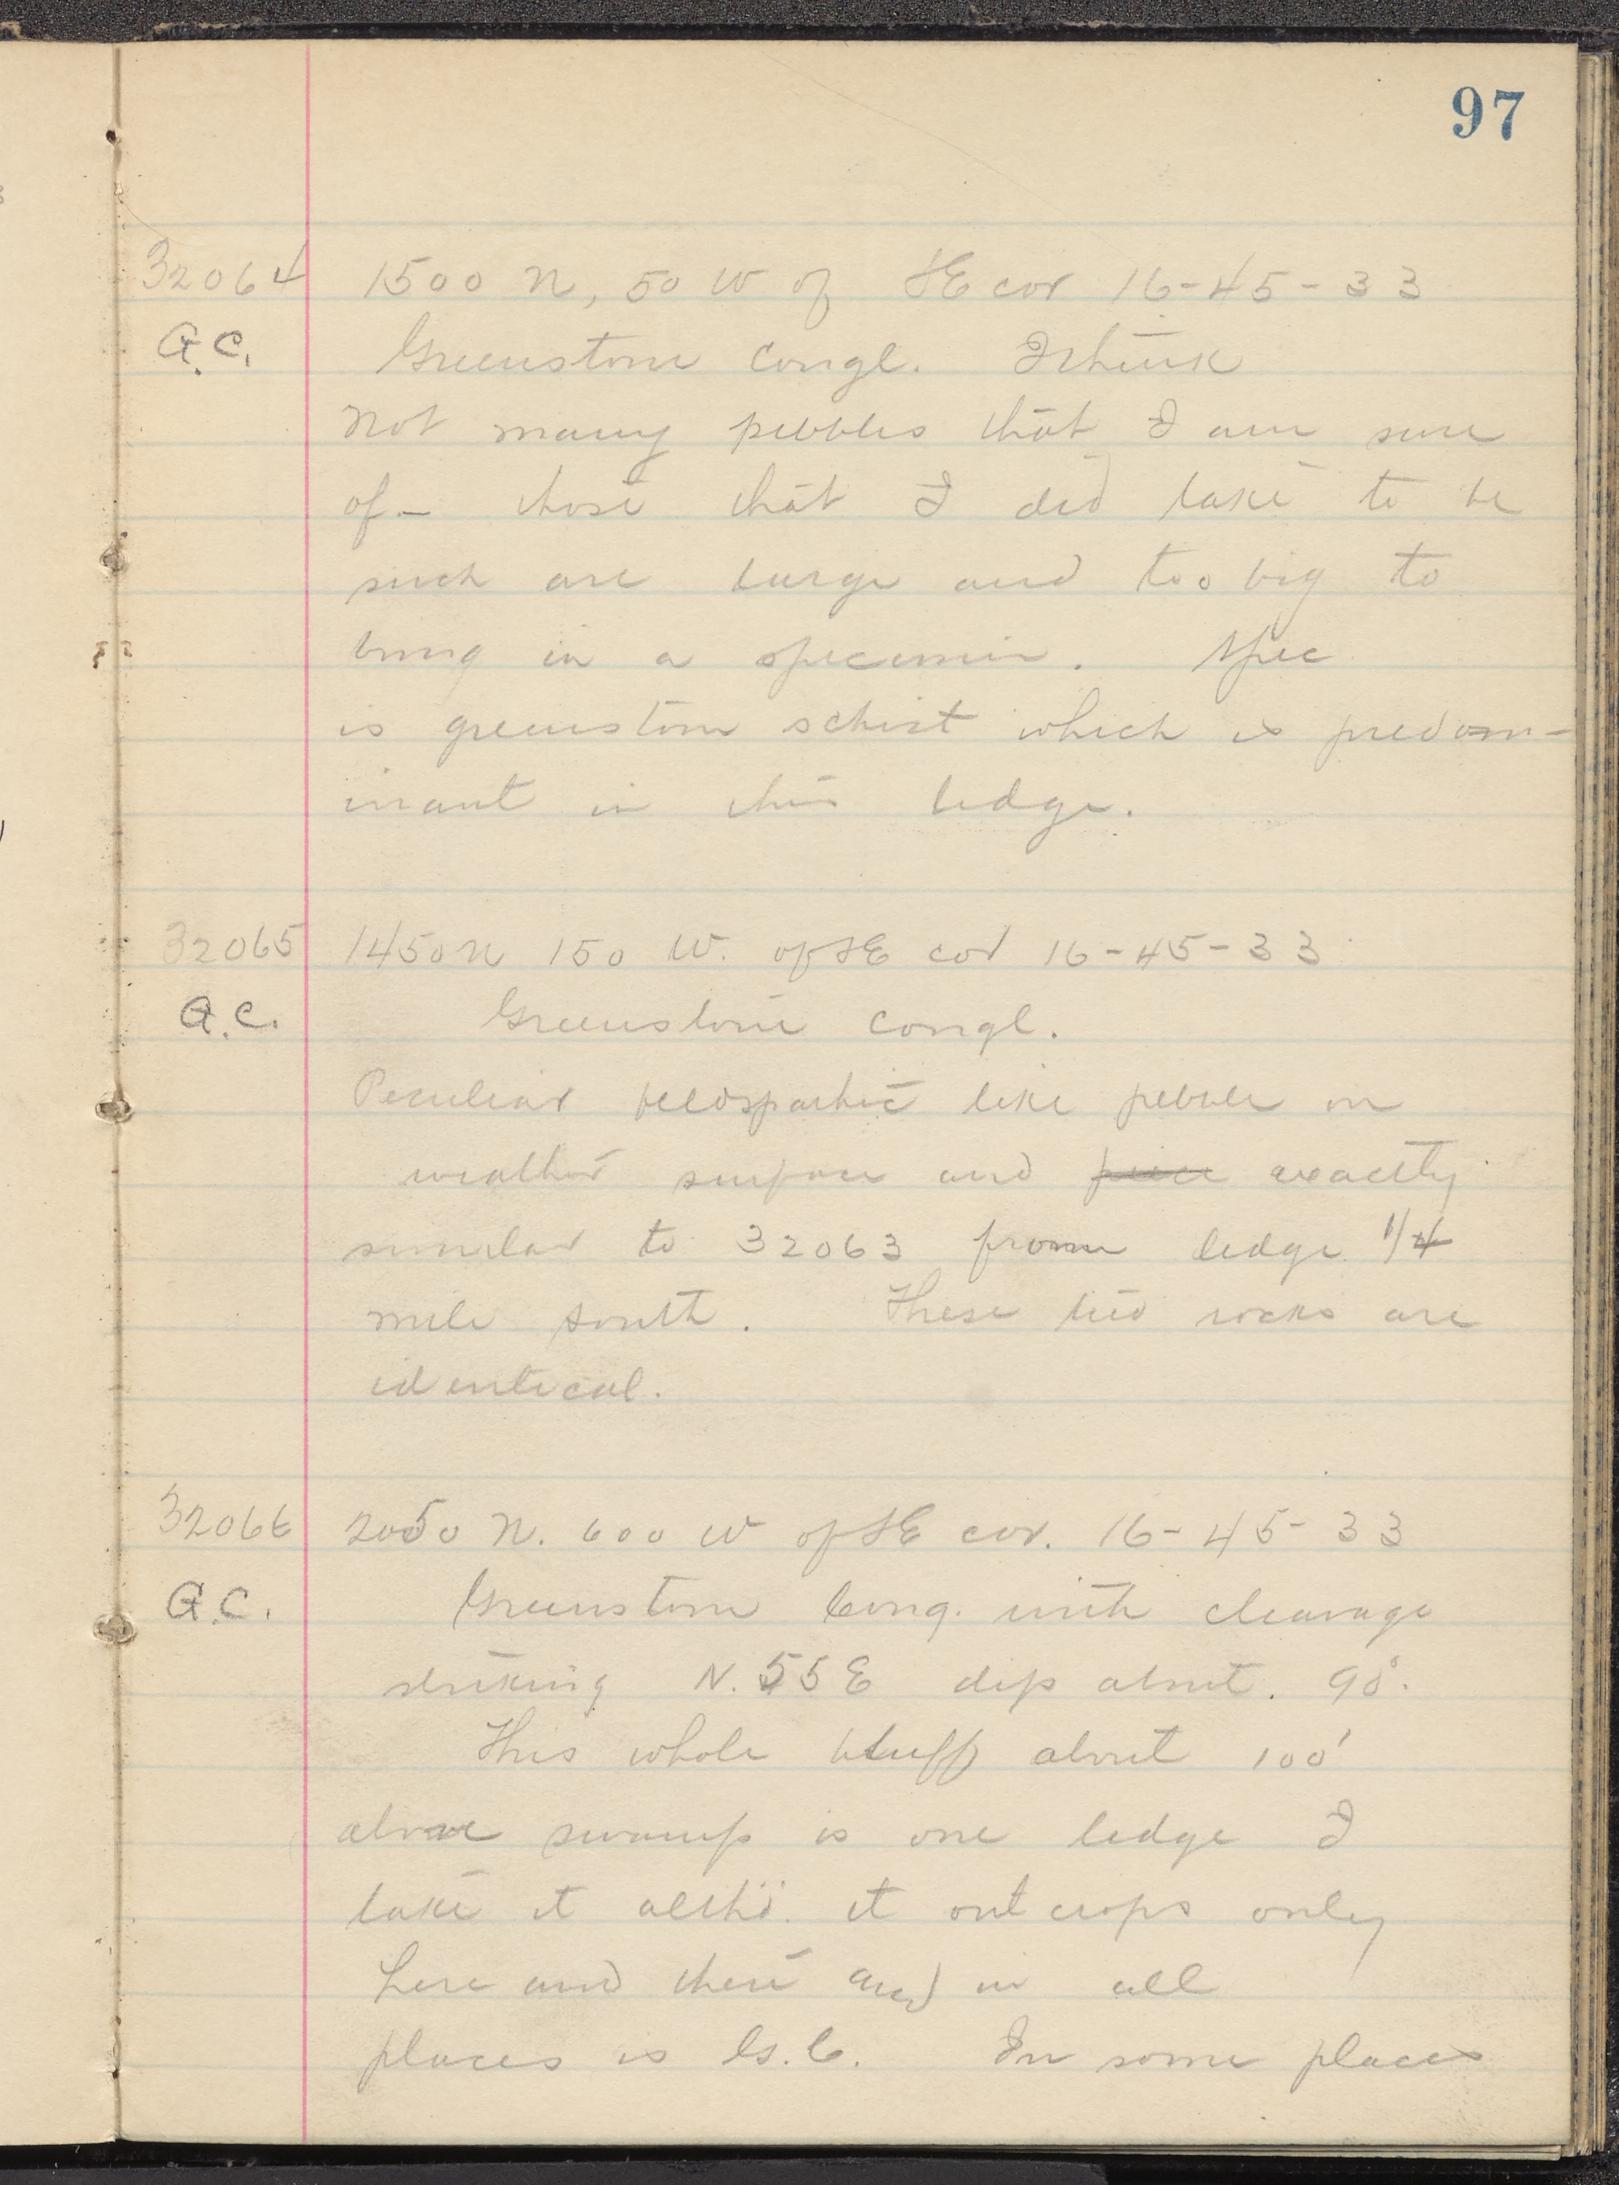 97
32064 1500 N, 50 W of SE cor 16-45-33
G.C. Greenstone Congl. I think
Not many pebbles that I am sure
of - those that I did take to be
such are large and too big to
bring in a specimen. Spec
is greenstone schist which is predom-
inant in this ledge.
32065 1450 N 150 W. of SE cor 16-45-33
G.C. Greenstone Congl.
Peculiar feldspathic like pebble on
weather surface and piece exactly
similar to 32063 from ledge 1/4
mile South. These two rocks are
identical.
32066 2050 N. 600 W of SE cor. 16-45-33
G.C. Greenstone Cong. with cleavage
striking N.55E dip about. 90°.
This whole bluff about 100'
above swamp is one ledge I
take it altho. it outcrops only
here and there and in all
places is G.C. In some places